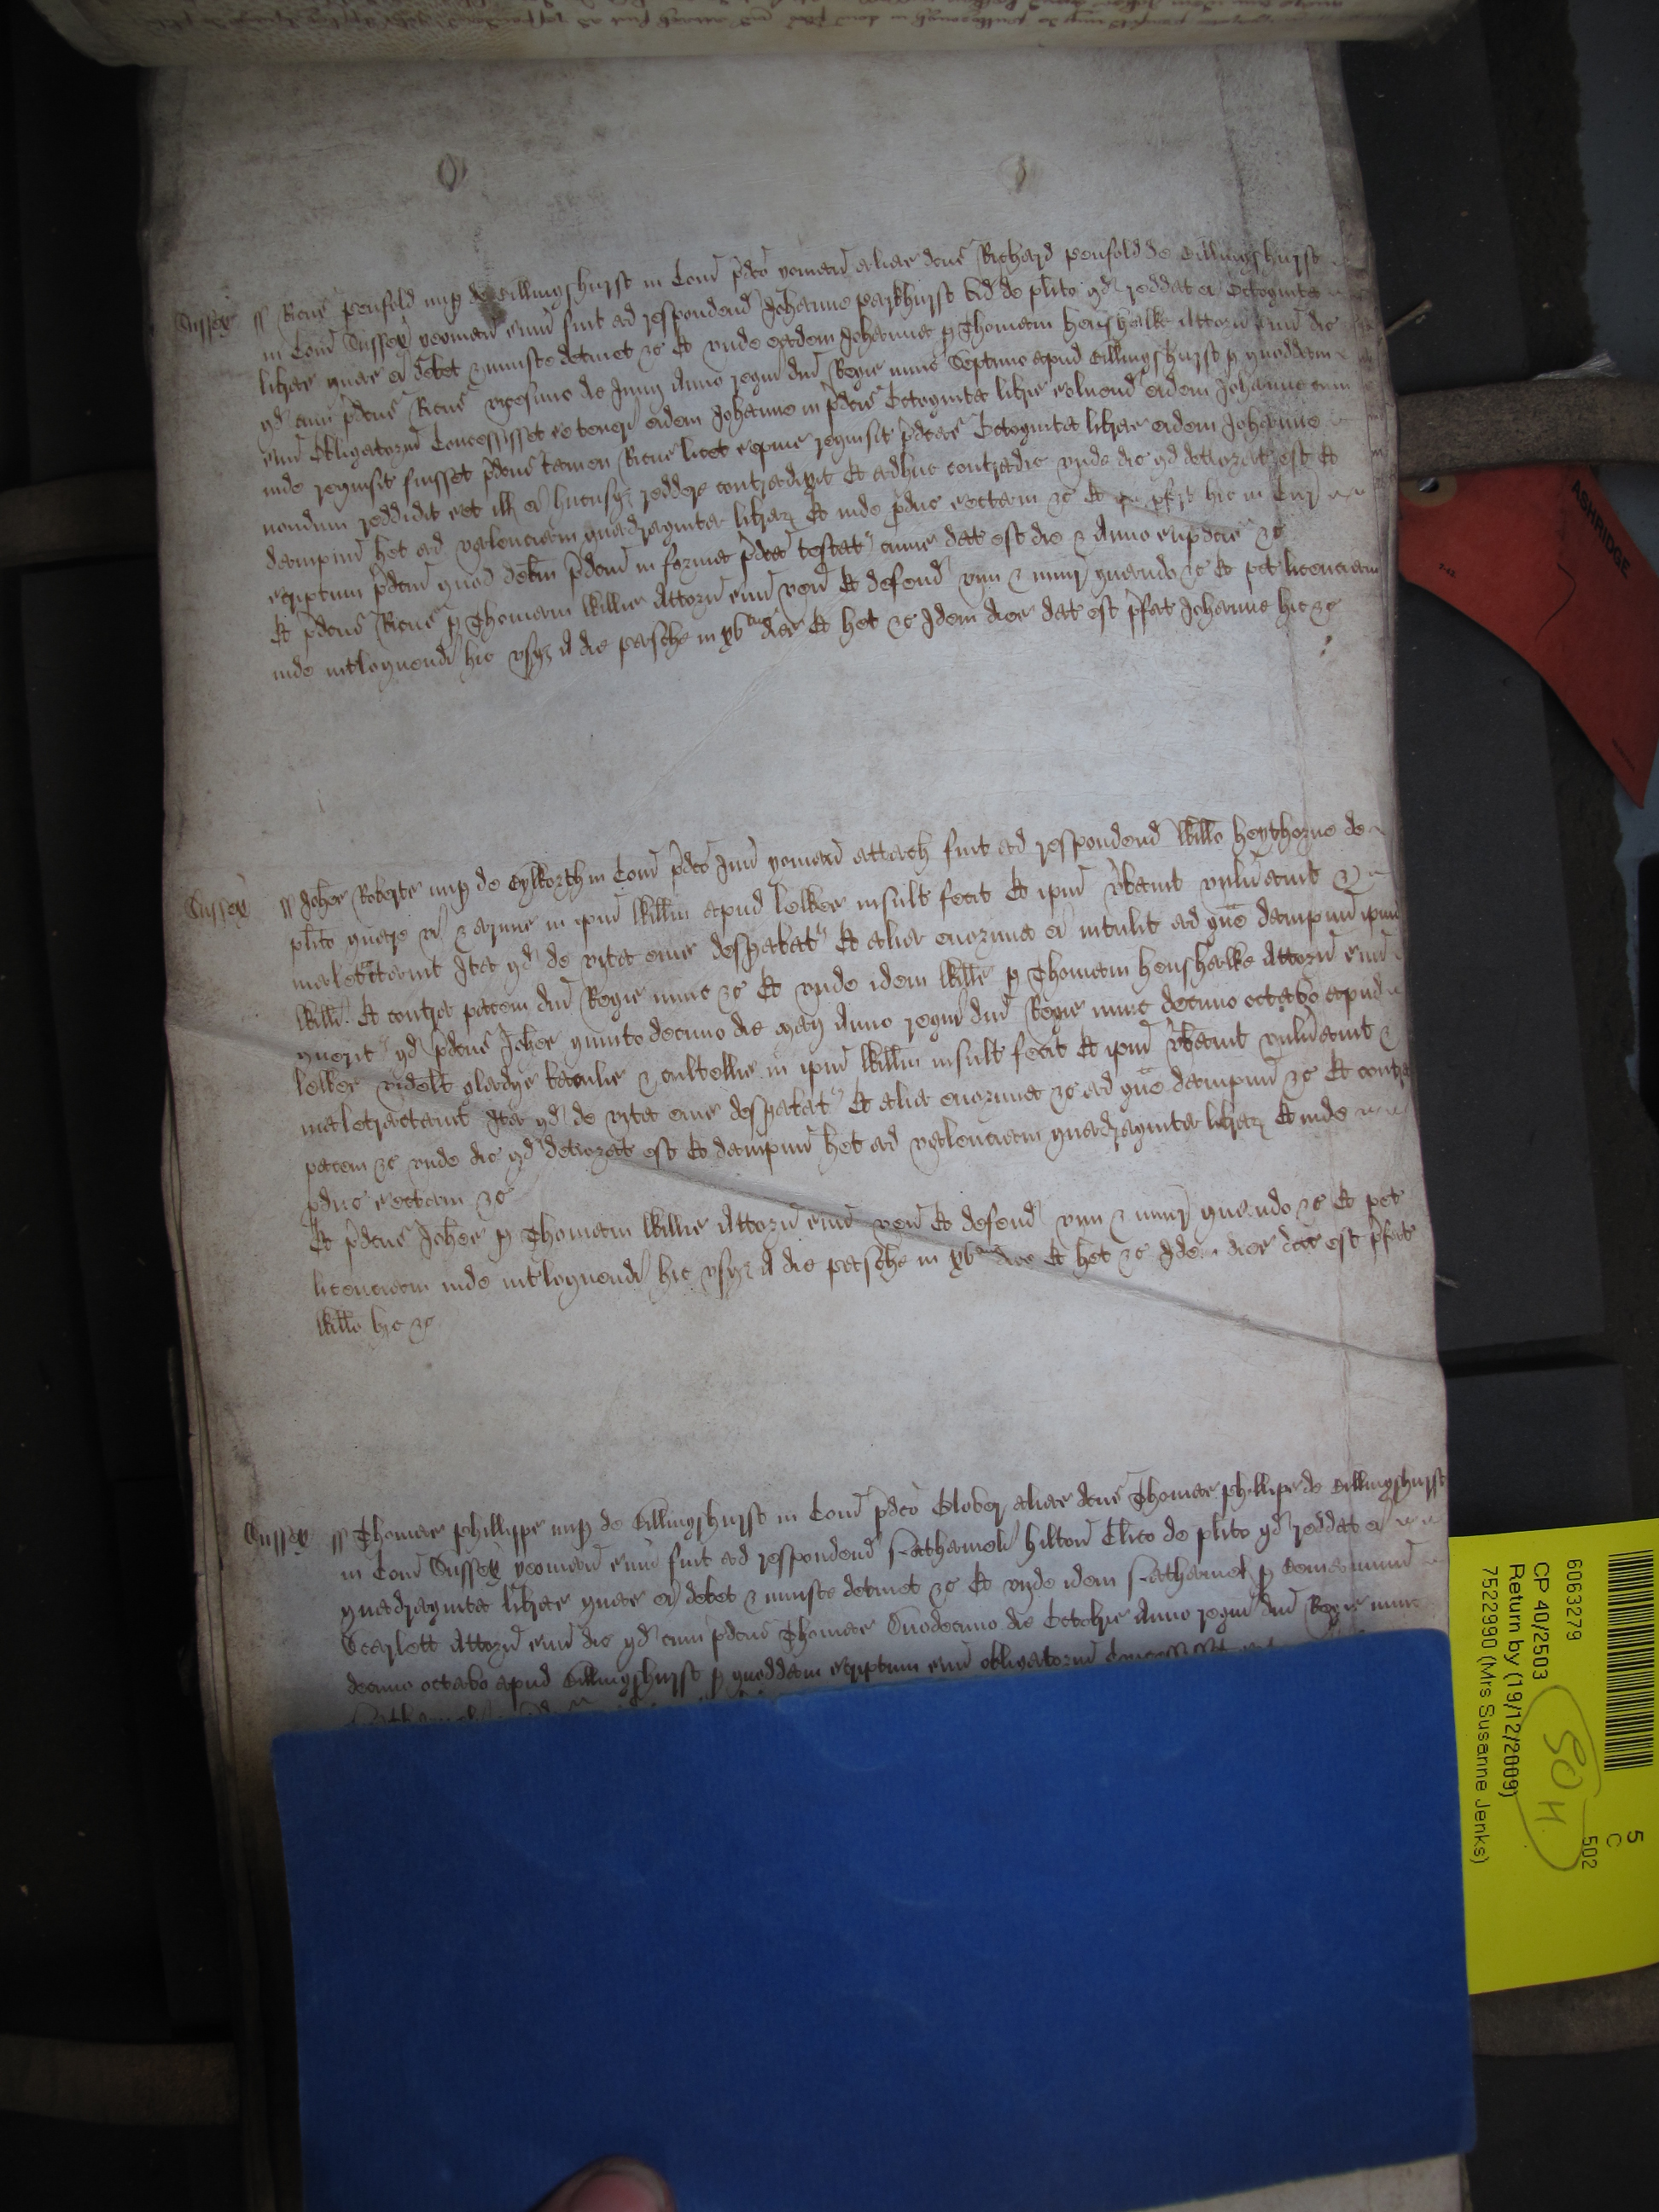 Sussex ss Ricus Penfold nup de Billingshurst in Com pdco yoman alias dcus Richard Penfold de Billingshurst
in Com Sussex yeoman sum fuit ad respondend Johanne Parkhurst vid de plito qd reddat ei Octoginta
libras quas ei debet & iniuste detinet &c Et unde eadem Johanna p Thomam Henshawe Attorn suum dic
qd cum pdcus Ricus vicesimo die Junij Anno regni dni Regis nunc Septimo apud Billingshurst p quoddam
suu Obligatorm Concessisset se teneri eidem Johanne in pdcis Octoginta libris solvend eidem Johanne cum
inde requisit fuisset pdcus tamen Ricus licet sepius requisit pdcas Octoginta libras eidem Johanne
nondum reddidit set ill ei hucusq reddere contradixit Et adhuc contradic unde dic qd deteriorat est Et
dampnu het ad valenciam quadraginta librar Et inde pduc sectam &c Et pfert hic in Cur
scriptum pdcm quod debm pdcm in forma pdca testat cuius dat est die & Anno supdcis &c
Et pdcus Ricus p Thomam Willis Attorn suu ven Et defend vim & iniur quando &c Et pet licenciam
inde intloquendi hic usq A die pasche in xv dies Et het &c Idem dies dat est pfat Johanne hic &c
Sussex ss Johes Roberts nup de in Com pdco Juu yoman attach fuit ad respondend Willo Heythorne de
plito quare vi & armis in ipm Willm apud Lewes insult fecit Et ipm vbavit vulnavit &
maletractavit Ita qd de vita eius despabat Et alia enormia ei intulit ad gve dampnu ipius
Willi Et contra pacem dni Regis nunc &c Et unde idem Wills p Thomam Henshawe Attorn suu
querit qd pdcus Johes quinto decimo die Maij Anno regni dni Regis nunc decimo octavo apud
Lewes videlt gladijs baculis & cultellis in ipm Willm insult fecit Et ipm vbavit vulnavit &
maletractavit Ita qd de vita eius despabat Et alia enormia &c ad gve dampnu &c Et contra
pacem &c unde dic qd deteriorat est Et dampnu het ad valenciam quadraginta librar Et inde
pduc sectam &c
Et pdcus Johes p Thomam Willis Attorn suu ven Et defend vim & iniur quando &c Et pet
licenciam inde intloquendi hic usq A die pasche in xv dies Et het &c Idem dies dat est pfat
Willo hic &c
Sussex ss Thomas Phillipps nup de Billingshurst in Com pdco Glover alias dcus Thomas Phillips de Billingshurst
in Com Sussex yeoman sum fuit ad respondend Nathanieli Hilton Clico de plito qd reddat ei
quadraginta libras quas ei debet & iniuste detinet &c Et unde idem Nathaniel p Edmundum
Scarlett Attorn suu dic qd cum pdcus Thomas Duodecimo die Octobris Anno regni dni Regis nunc
decimo octavo apud Billingshurst p quoddam scriptum suu obligatorm Concessisset
ASHRIDGE
6063279
CP 40/2503
Return by (19/12/2009)
7522990 (Mrs Susanne Jenks)
SOH
5
C
502